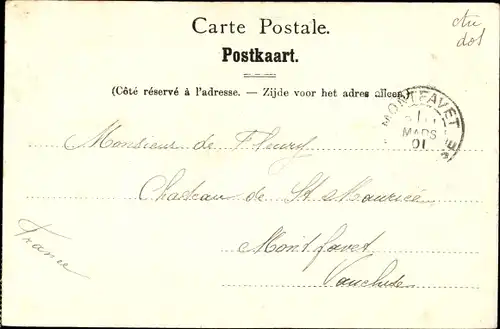 Carte Postale.
Postkaart.
(Côté réservé à l'adresse. — Zijde voor het adres alleen.)
MONTFAVET
MARS
01
Monsieur de Fleury
Chateau de St Maurice
Montfavet
Vaucluse
France